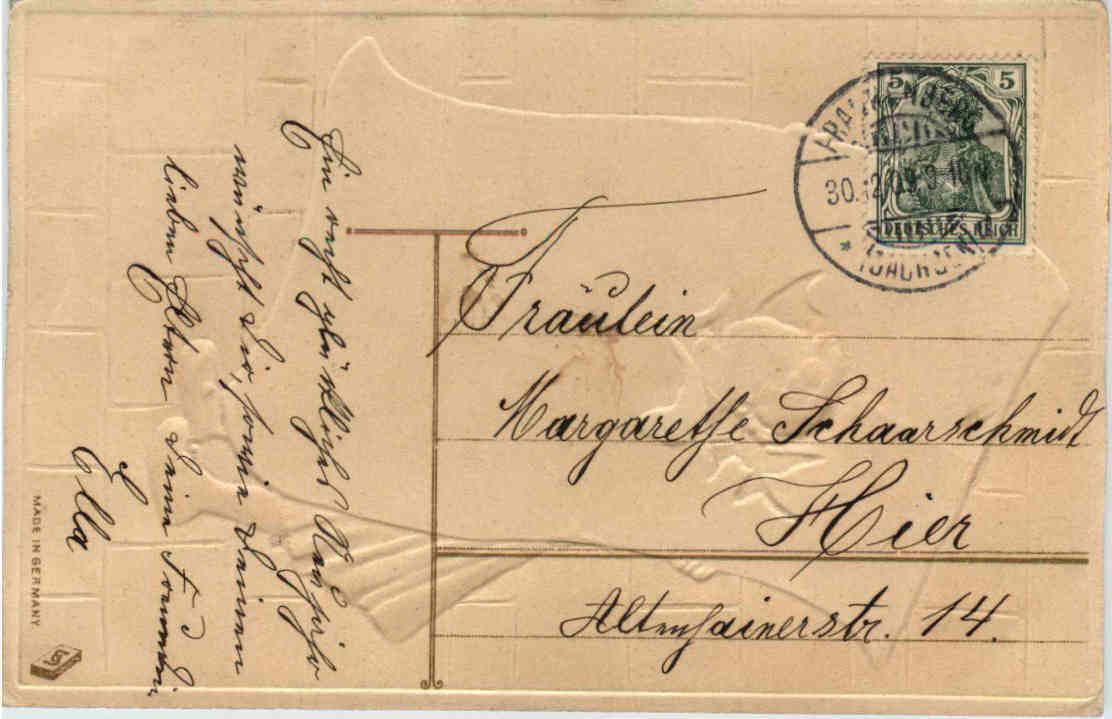 Ein recht glückliches Neujahr
wünscht Dir, sowie Deinen
lieben Eltern Deine Freundin
Ella
Fräulein
Margarethe Schaarschmidt
Hier
Altenhainerstr. 14.
5 5
DEUTSCHES REICH
FRANKENBERG
30.12.09.9-10
* (SACHSEN)
MADE IN GERMANY